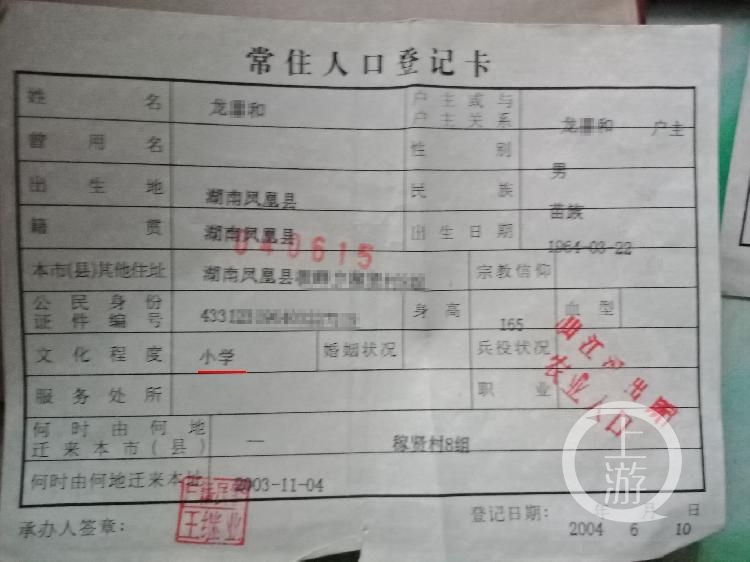 常住人口登记卡
姓名 龙 和 户主或与户主关系 龙 和 户主
曾用名 性别 男
出生地 湖南凤凰县 民族 苗族
籍贯 湖南凤凰县 出生日期 1964-03-22
040615
本市(县)其他住址 湖南凤凰县 宗教信仰
公民身份证件编号 4331 身高 165 血型
文化程度 小学 婚姻状况 兵役状况
服务处所 职业
农业人口
何时由何地迁来本市(县) — 稼贤村8组
何时由何地迁来本址 2003-11-04
王继业
承办人签章: 登记日期: 2004年6月10日
上游